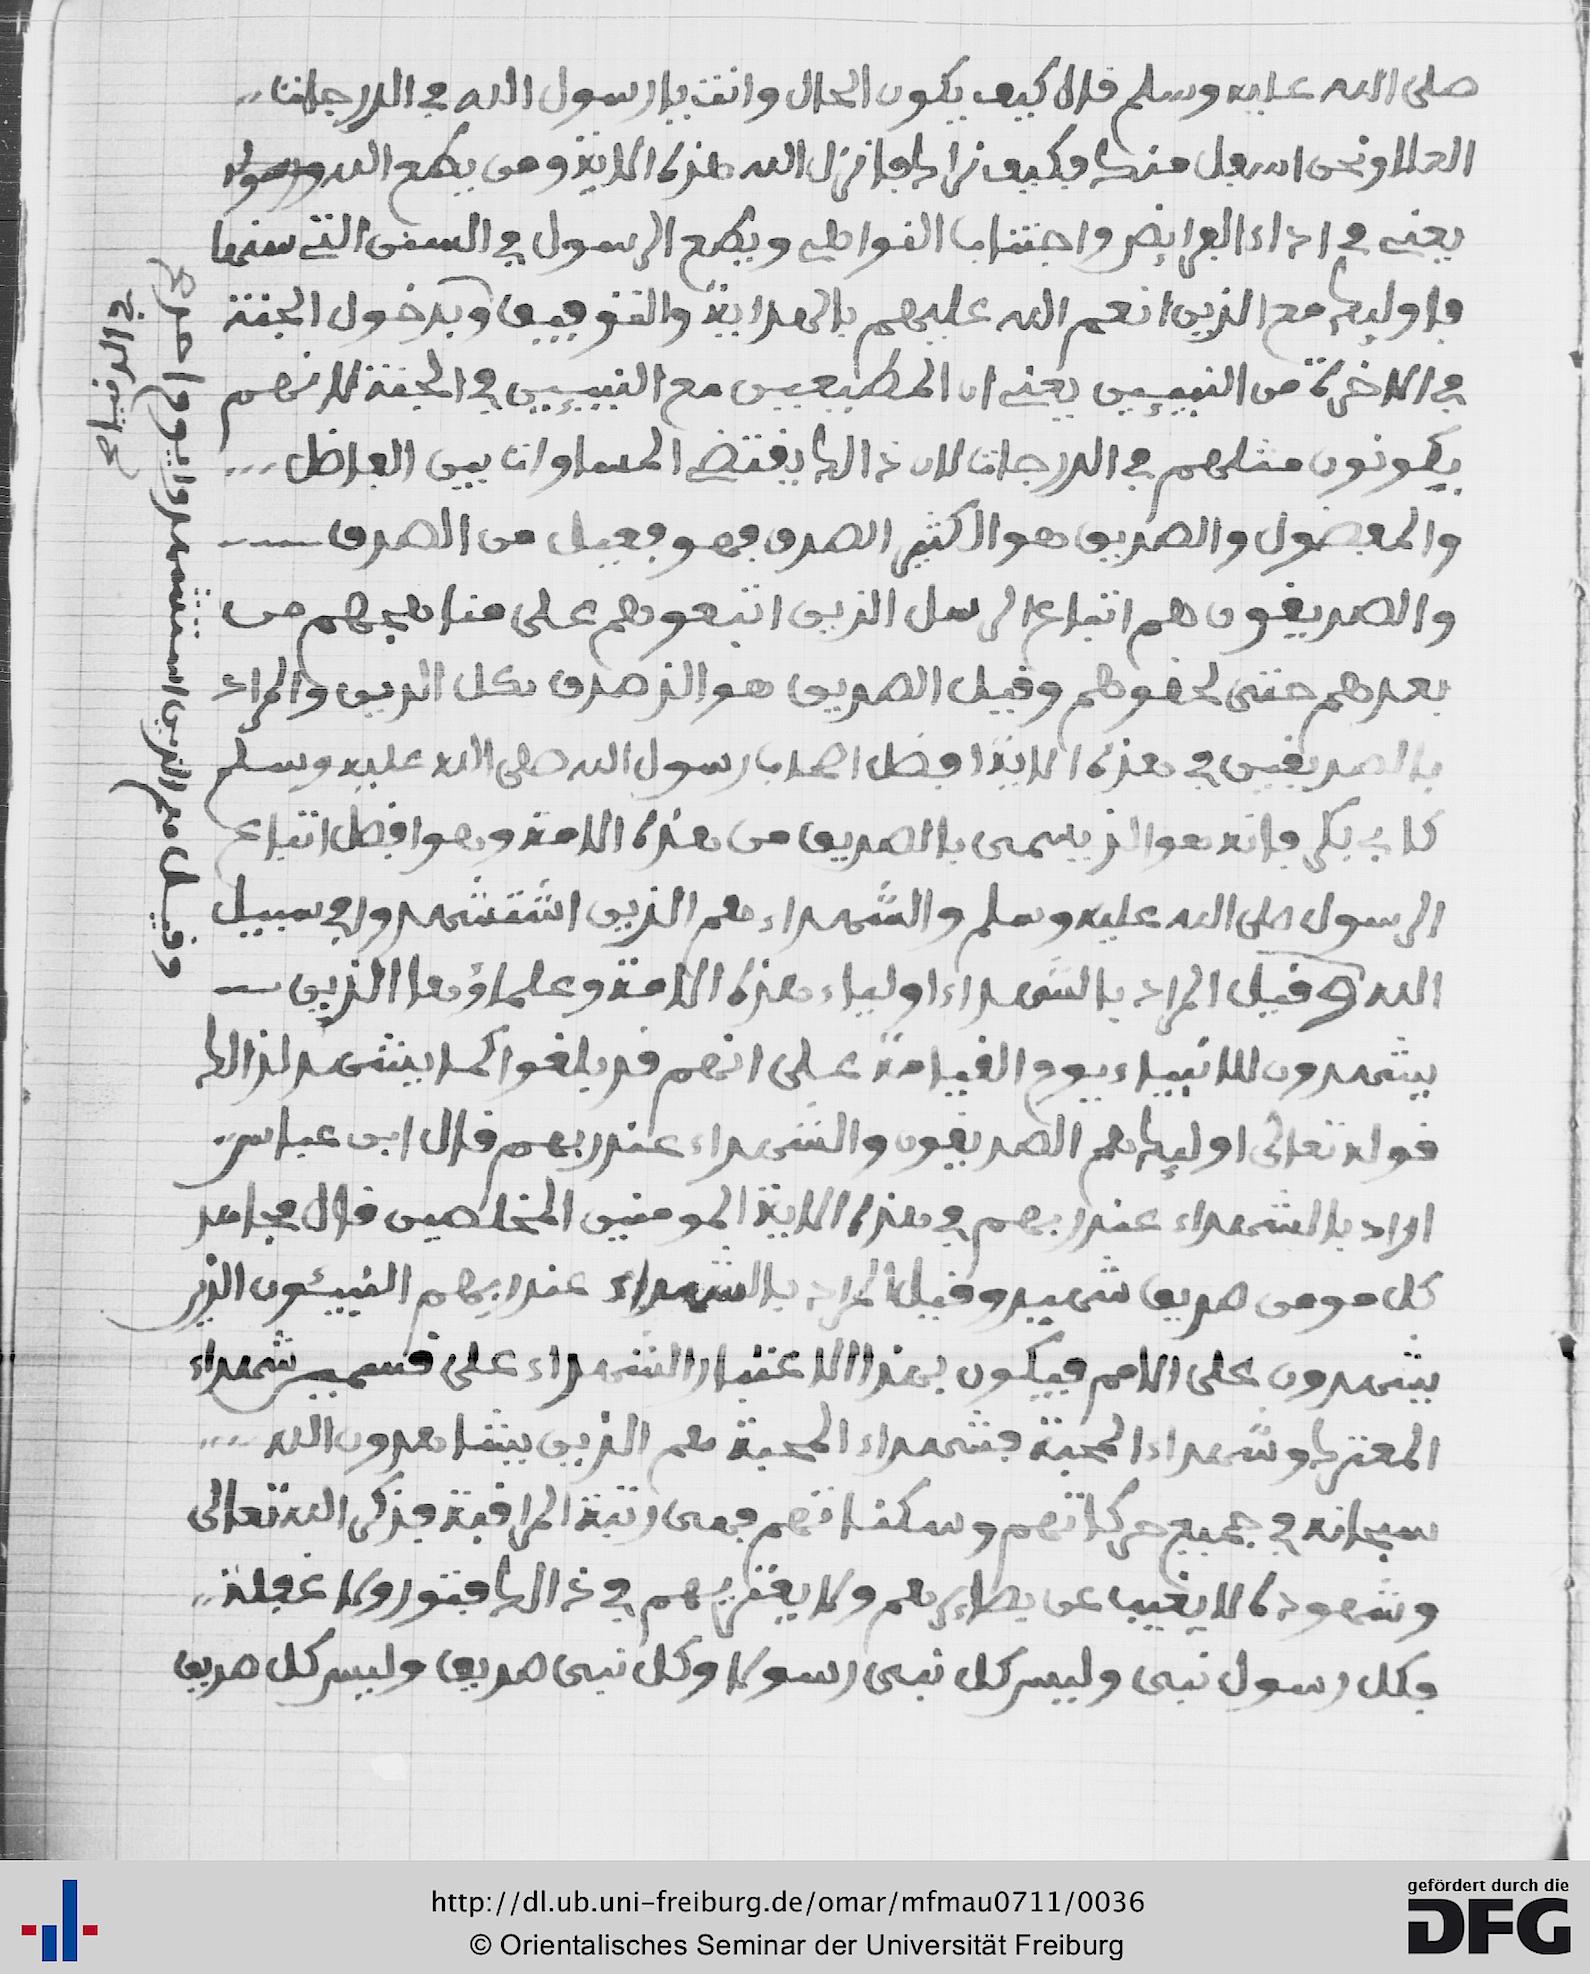 صلى الله عليه وسلم قال كيف يكون الحال وانت يا رسول الله في الدرجات
العلا ونحن اسفل منك فكيف نراك فانزل الله هذه الاية ومن يطع الله ورسوله
يعني في اداء الفرايض واجتناب النواهي ويطع الرسول في السنن التي سنها
فاوليك مع الذين انعم الله عليهم بالهداية والتوفيق وبدخول الجنة
في الاخرة من النبيين يعني ان المطيعين مع النبيين في الجنة لا انهم
يكونون مثلهم في الدرجات لان ذالك يقتضي المساوات بين الفاضل
والمفضول والصديق هو الكثير الصدق فهو فعيل من الصدق
والصديقون هم اتباع الرسل الذين اتبعوهم على مناهجهم من
بعدهم حتى لحقوهم وقيل الصديق هو الذ صدق بكل الدين والمراد
بالصديقين في هذه الاية افضل اصحاب رسول الله صلى الله عليه وسلم
كابي بكر فانه هو الذ يسمى بالصديق من هذه الامة وهو افضل اتباع
الرسول صلى الله عليه وسلم والشهداء هم الذين استشهدوا في سبيل
الله وقيل المراد بالشهداء اولياء هذه الامة وعلماؤها الذين
يشهدون للانبياء يوم القيامة على انهم قد بلغوا كما يشهد لذالك
قوله تعالى اوليك هم الصديقون والشهداء عند ربهم قال ابن عباس
اراد بالشهداء عند ربهم في هذه الاية المومنين المخلصين قال مجاهد
كل مومن صديق شهيد وقيل المراد بالشهداء عند ربهم النبيئون الذين
يشهدون على الامم فيكون بهذا الاعتبار الشهداء على قسمين شهداء
المعترك وشهداء المحبة فشهداء المحبة هم الذين يشاهدون الله
سبحانه في جميع حركاتهم وسكناتهم فهي رتبة المراقبة فذكر الله تعالى
وشهوده لا يغيب عن بصايرهم ولا يعتريهم في ذالك فتور ولا غفلة
فكل رسول نبي وليس كل نبي رسولا وكل نبي صديق وليس كل صديق
وقيل هم الذين استشهدوا يوم احد
في الدنيا